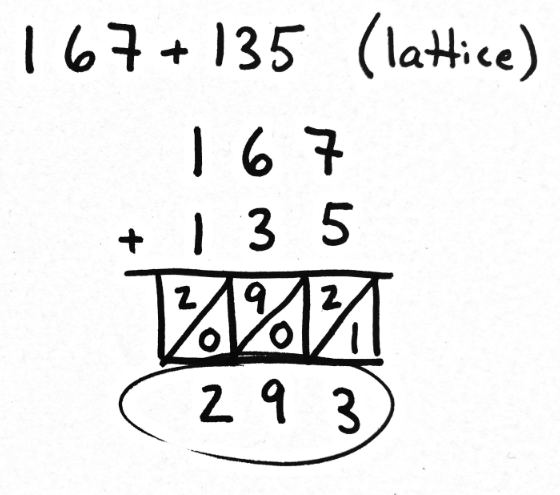 167 + 135 (lattice)
1 6 7
+ 1 3 5
2/0 9/0 2/1
2 9 3